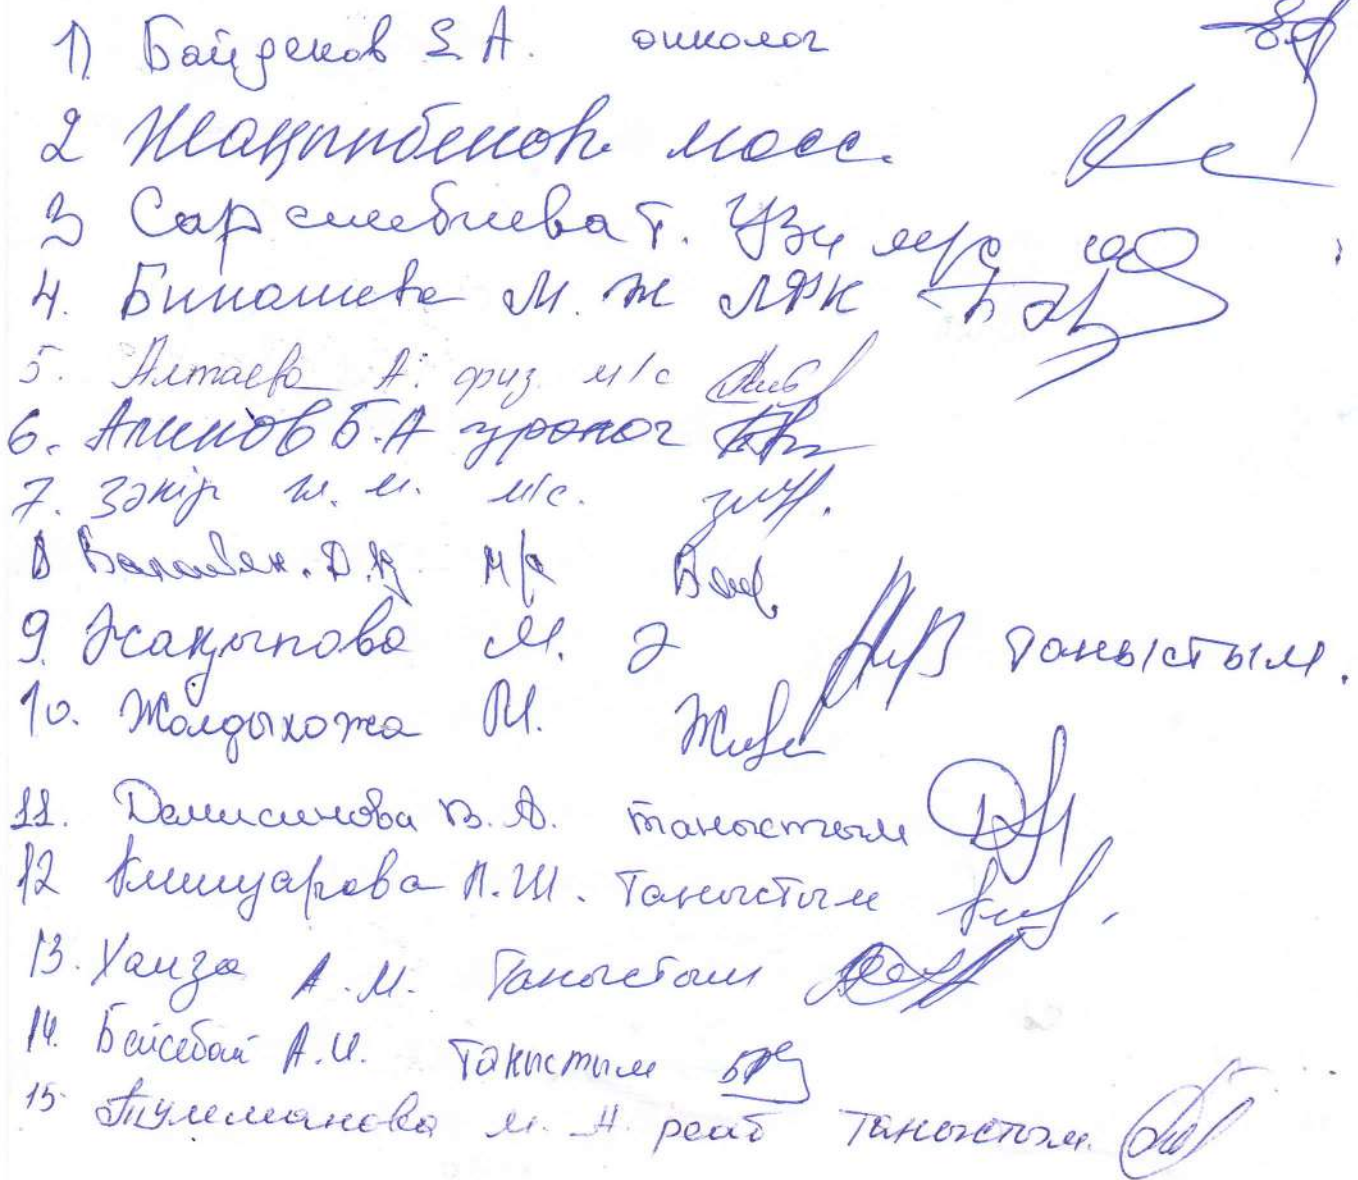 1) Байденов Е.А. онколог
2 Жақыпбеков масс.
3 Сарсембиева Т. Узи м/с
4. Бинашева М. Ж ЛФК
5. Алтаева А. физ м/с
6. Аминов Б.А уролог
7. Зәкір Ж. М. м/с.
8 Д.Қ м/с
9. Жақыпова М. Ә таныстым.
10. Жолдыхожа М.
11. Демисинова В. А. таныстым
12 А.Ш. Таныстым
13. Хамза А. М. Таныстым
14. Бейсебай А.И. Таныстым
15. Тулеманова М. Н. реаб таныстым.